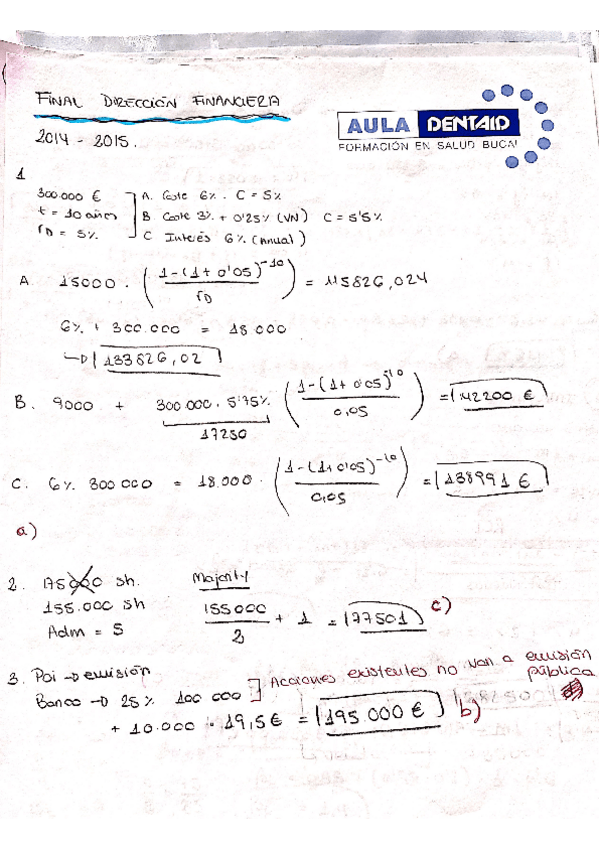 FINAL DIRECCIÓN FINANCIERA
2014 - 2015.
AULA DENTAID
FORMACIÓN EN SALUD BUCAL
1
300.000 € A. Coste 6%. C = 5%
t = 10 años B. Coste 3% + 0'25% (VN) C = 5'5%
rD = 5% C Interés 6% (Anual)
A. 15000 · ( 1-(1+0'05)^-10 / rD ) = 115826,024
6% + 300.000 = 18000
→ 133826,02
B. 9000 + 300.000 · 5'75% ( 1-(1+0.05)^-10 / 0,05 ) = 142200 €
17250
C. 6% 300 000 = 18.000 · ( 1-(1+0'05)^-10 / 0,05 ) = 138991 €
a)
2. 175000 sh. Majority
155.000 sh 155000 / 2 + 1 = 77501 c)
Adm = 5
3. Poi → emisión
Banco → 25% 100 000 ] Acciones existentes no van a emisión pública
+ 10.000 · 19,5€ = 195.000 € b)